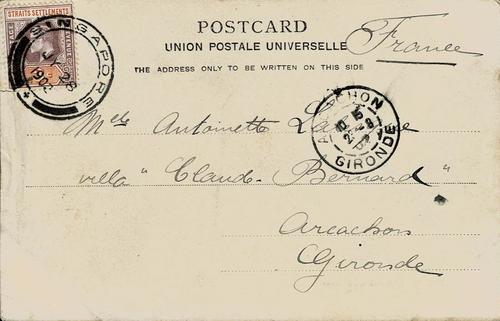 STRAITS SETTLEMENTS
SINGAPORE
1902
POSTCARD
UNION POSTALE UNIVERSELLE
France
THE ADDRESS ONLY TO BE WRITTEN ON THIS SIDE
ARCACHON
GIRONDE
Melle Antoinette
villa "Claude-Bernard"
Arcachon
Gironde